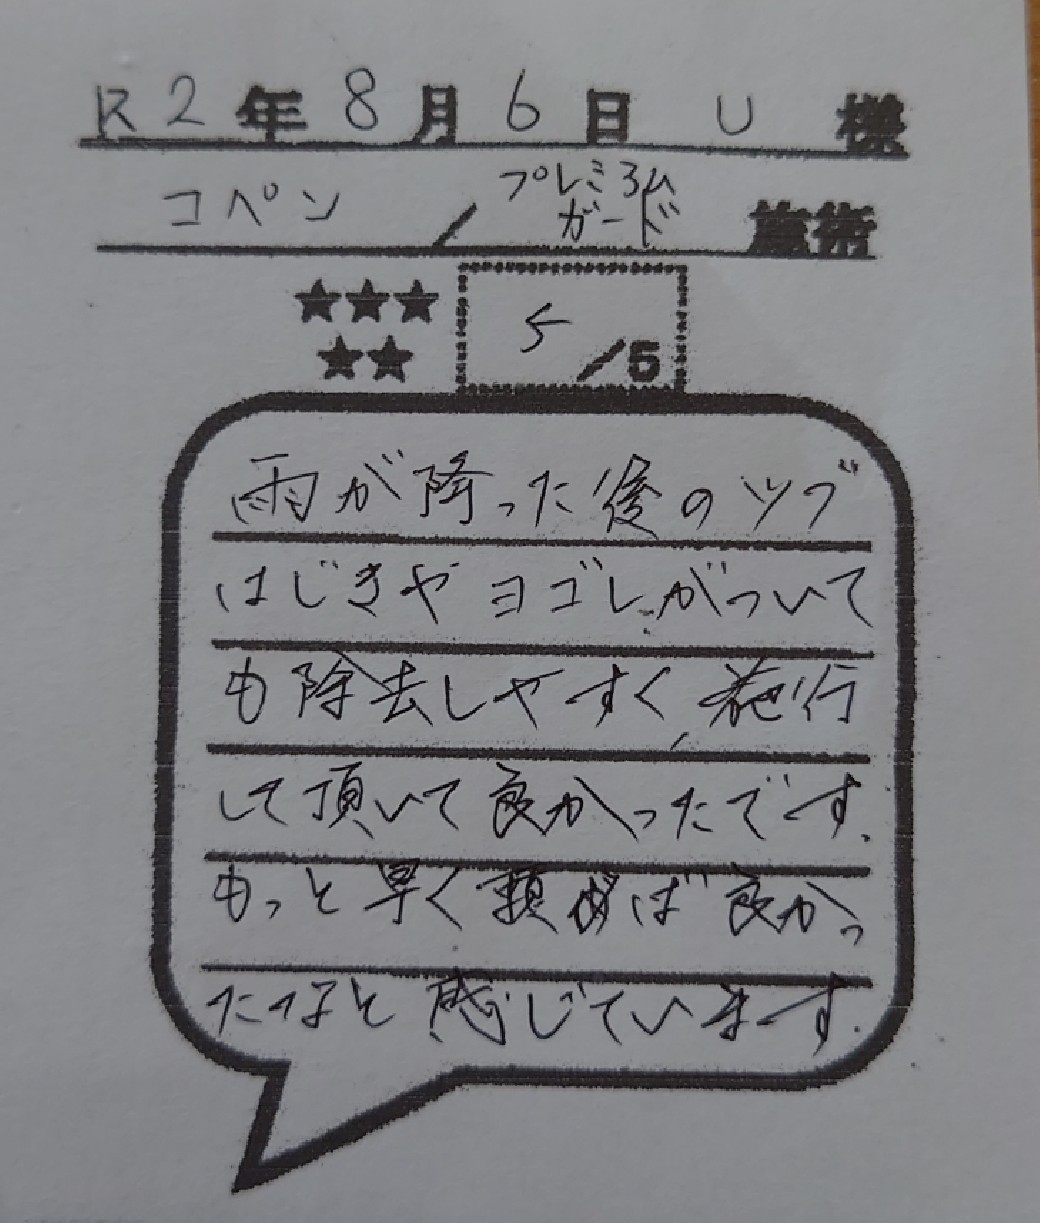 R2年8月6日 U 様
コペン / プレミアム
ガード 施術
★★★
★★
5/5
雨が降った後のツブ
はじきやヨゴレがついて
も除去しやすく、施行
して頂いて良かったです.
もっと早く頼めば良かっ
たなと感じています.